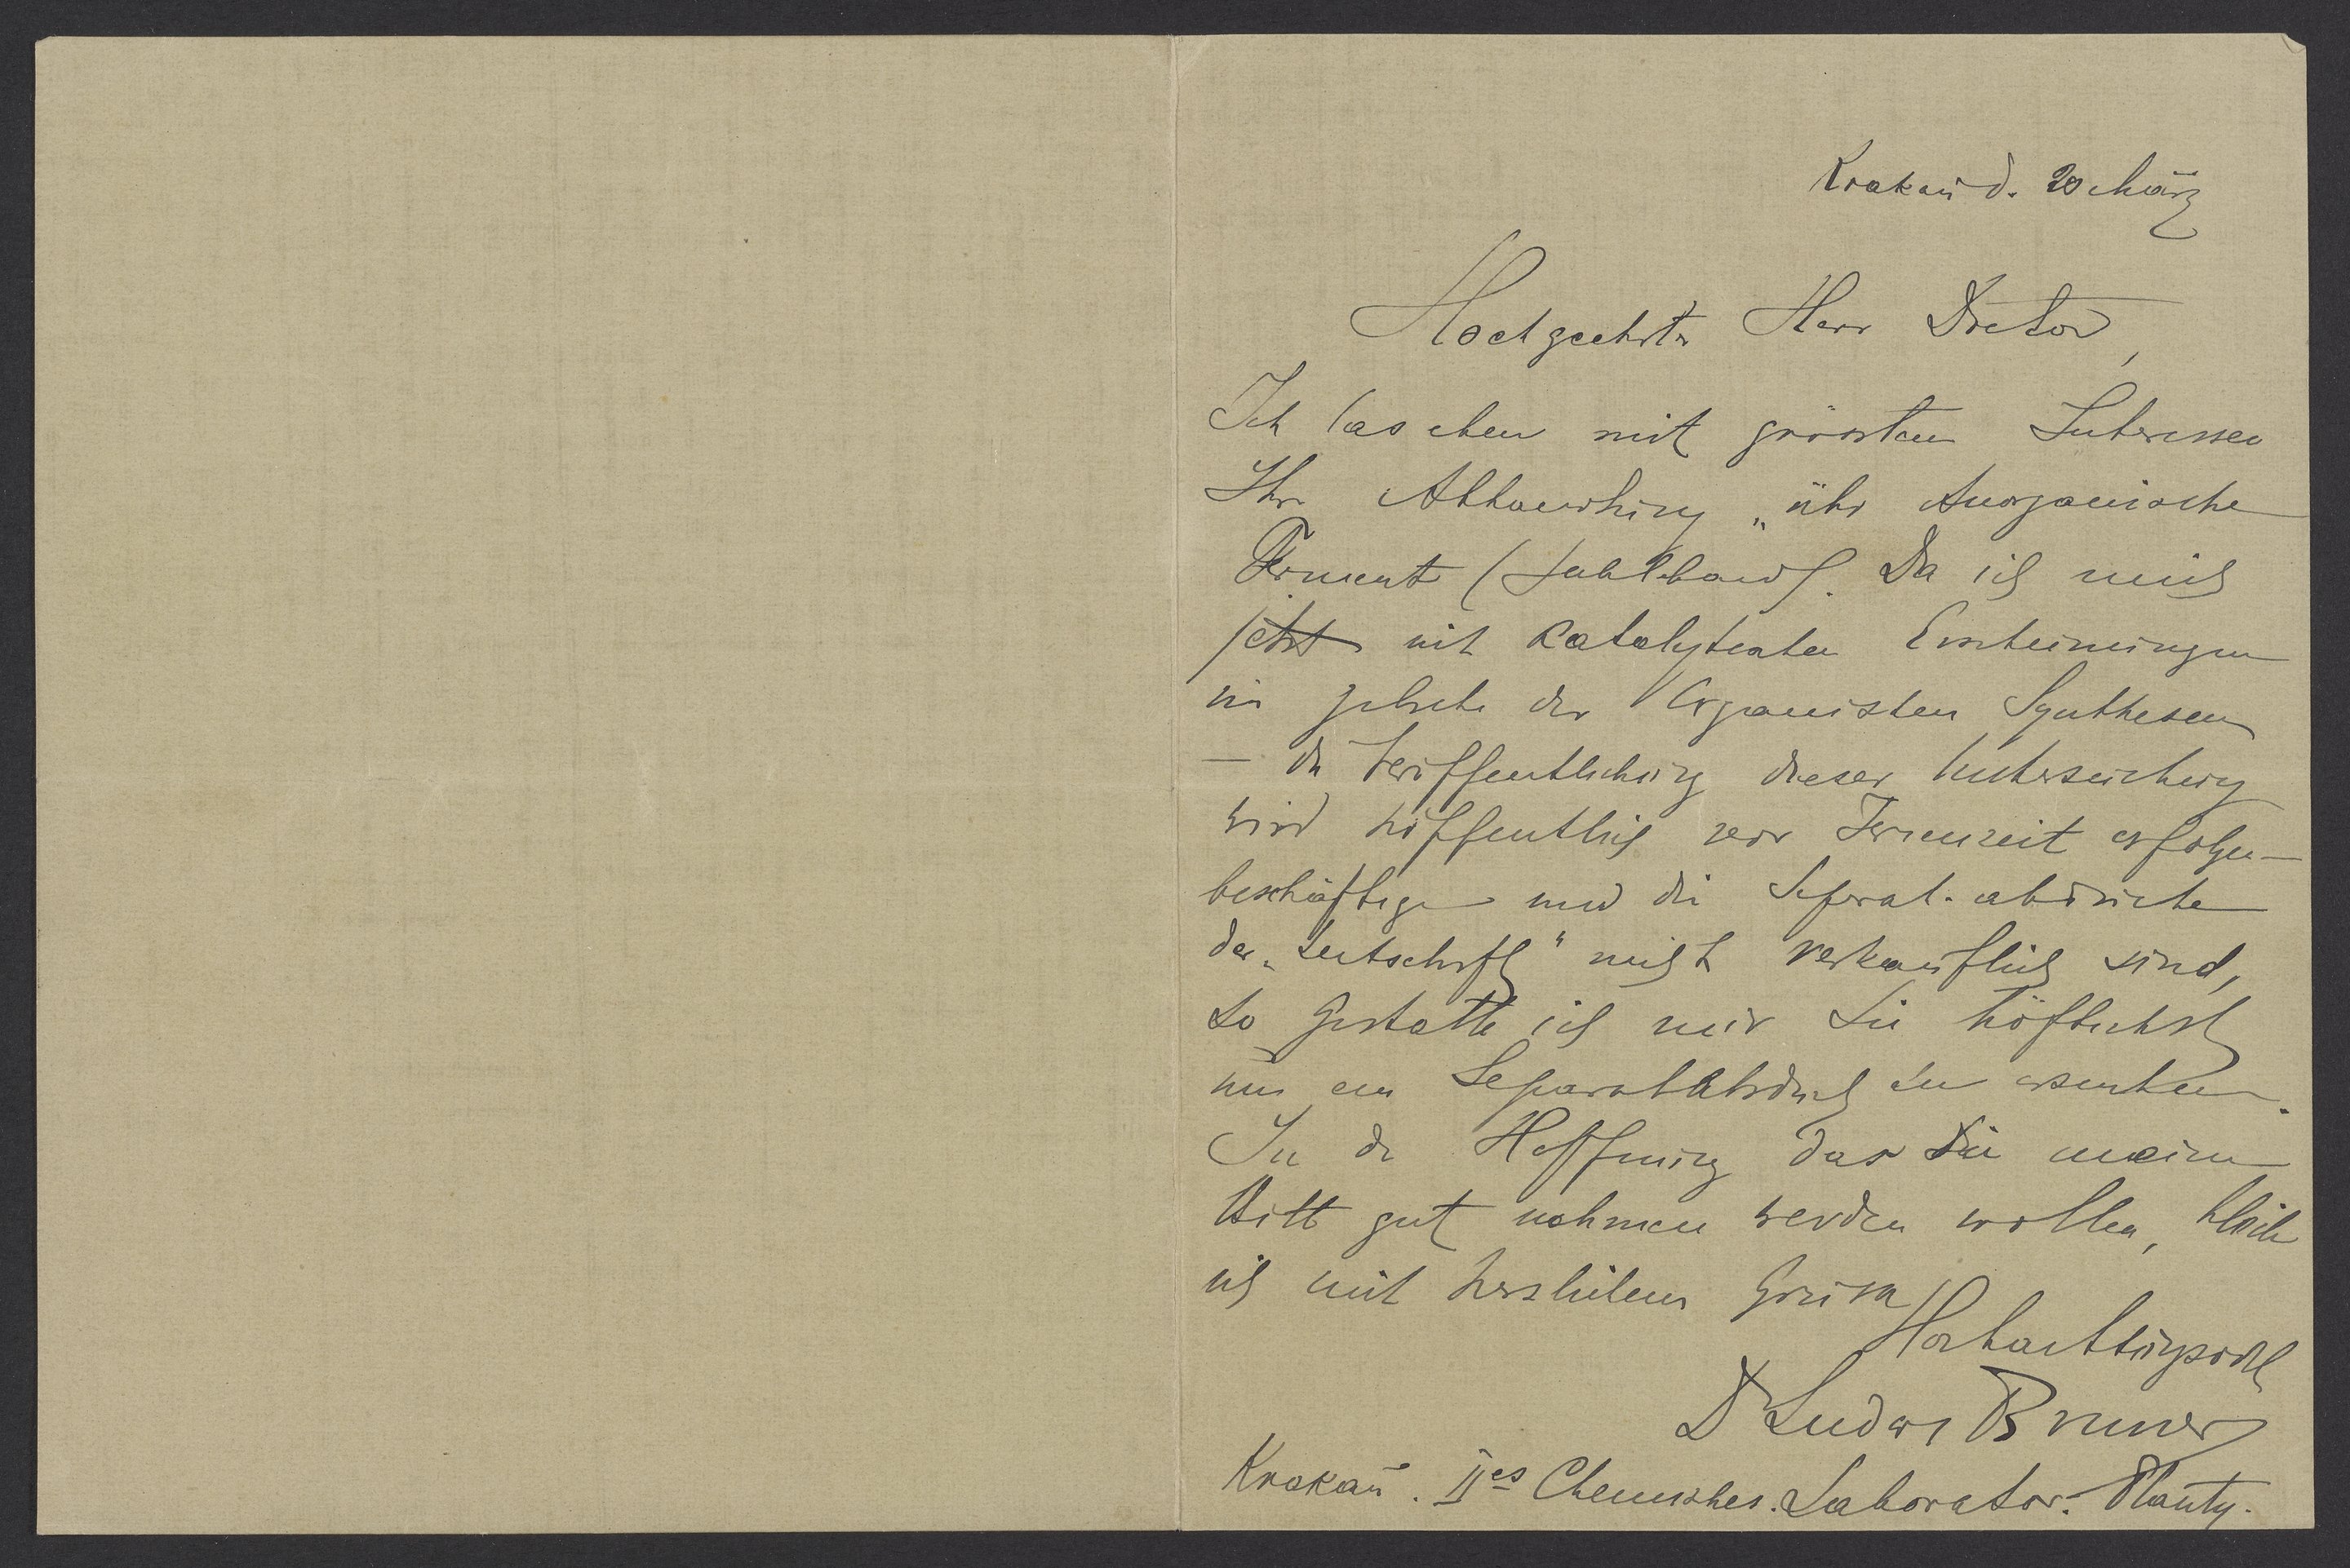 Krakau d. 20 März
Hochgeehrter Herr Doctor,
Ich las eben mit grössten Interessen
Ihre Abhandlung „über Anorganische
Fermente
Da ich mich
jetzt mit katalytischen Erscheinungen
im Gebiete der Organischen Synthesen
— die Veröffentlichung dieser Untersuchung
wird höffentlich vor Ferienzeit erfolgen —
beschäftige und die Seperat-abdrücke
der „Zeitschrift" nicht verkäuflich sind,
so gestatte ich mir Sie höflichst
um ein Separatabdruck zu ersuchen.
In der Hoffnung das Sie meine
Bitte gut nehmen werden wollen, bleibe
ich mit herzlichem Grüsse
Hochachtungsvoll
Dr Ludwig Bruner
Krakau. IIes Chemisches. Laborator. Planty.